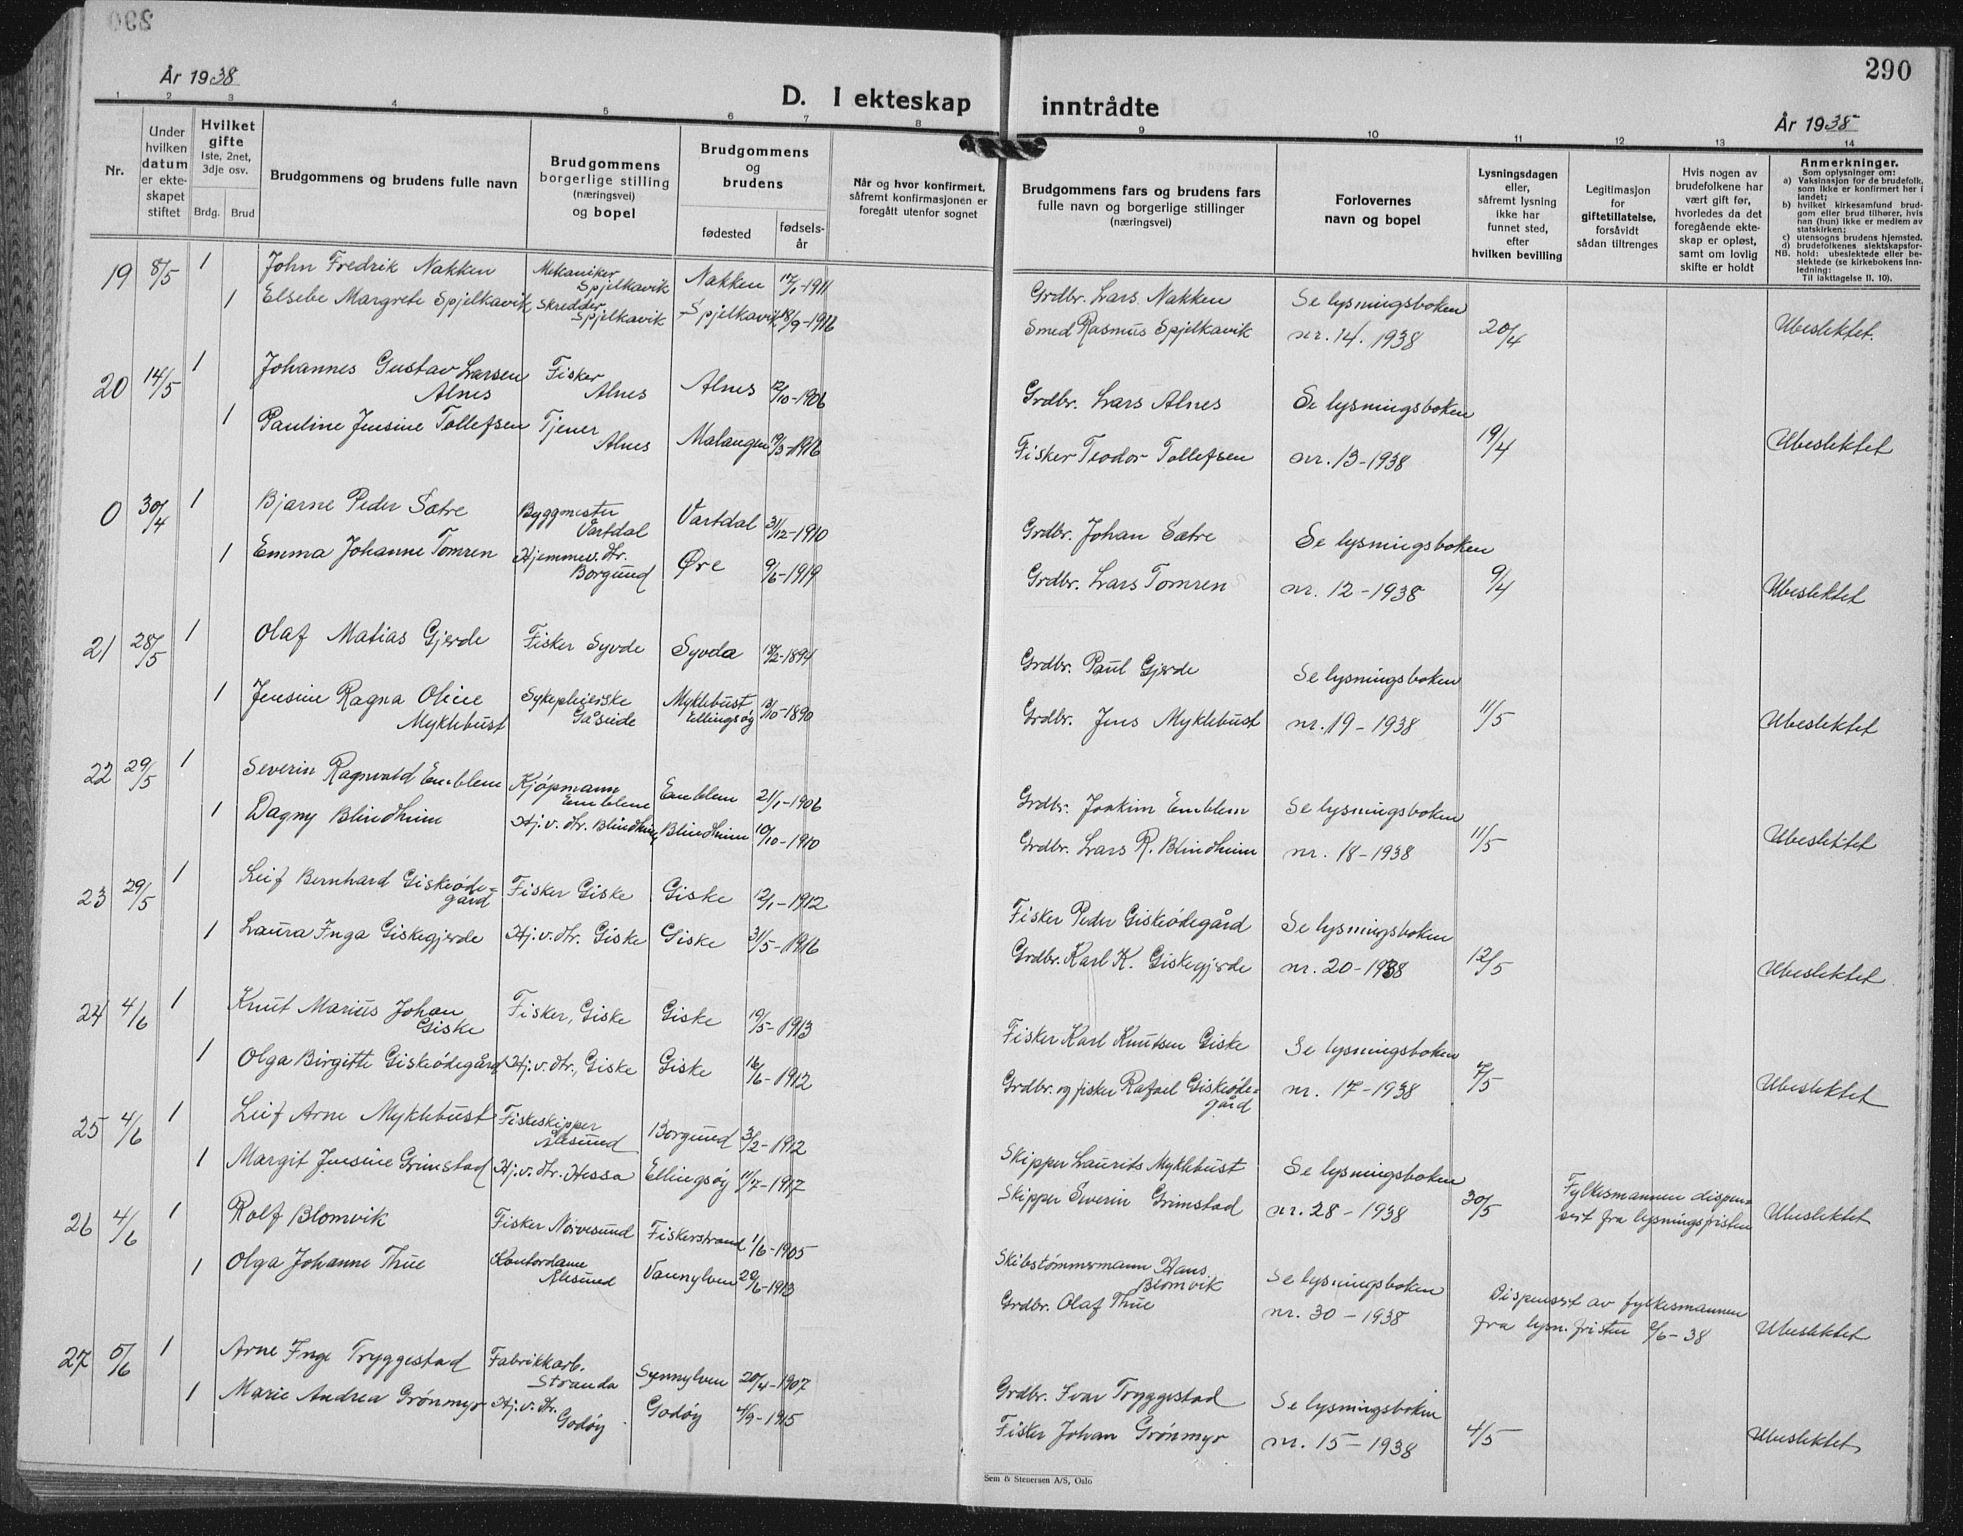 290
År 1938
D. I ekteskap inntrådte
År 1938
1 2 3 4 5 6 7 8 9 10 11 12 13 14
Nr.
Under hvilken datum er ekteskapet stiftet
Hvilket gifte
1ste, 2net, 3dje osv.
Brdg. Brud
Brudgommens og brudens fulle navn
Brudgommens borgerlige stilling (næringsvei) og bopel
Brudgommens og brudens
fødested
fødselsår
Når og hvor konfirmert, såfremt konfirmasjonen er foregått utenfor sognet
Brudgommens fars og brudens fars fulle navn og borgerlige stillinger (næringsvei)
Forlovernes navn og bopel
Lysningsdagen eller, såfremt lysning ikke har funnet sted, efter hvilken bevilling
Legitimasjon for giftetillatelse, forsåvidt sådan tiltrenges
Hvis nogen av brudefolkene har vært gift før, hvorledes da det foregående ekteskap er opløst, samt om lovlig skifte er holdt
Anmerkninger.
Som oplysninger om:
a) Vaksinasjon for de brudefolk, som ikke er konfirmert her i landet;
b) hvilket kirkesamfund brudgom eller brud tilhører, hvis han (hun) ikke er medlem av statskirken;
c) utensogns brudens hjemsted.
d) brudefolkenes slektskapsforhold: ubeslektede eller beslektede (se kirkebokens innledning:
NB. Til iakttagelse II. 10).
19 8/5 1 John Fredrik Nakken Mekaniker Spjelkavik Nakken 17/1-1911 Grdbr. Lars Nakken Se lysningsboken
1 Elsebe Margrete Spjelkavik Skredder Spjelkavik Spjelkavik 18/9-1916 Smed Rasmus Spjelkavik nr. 14. 1938 20/4 Ubeslektet.
20 14/5 1 Johannes Gustav Larsen Alnes Fisker Alnes Alnes 12/10-1906 Grdbr. Lars Alnes Se lysningsboken
1 Pauline Jensine Tollefsen Tjener Alnes Malangen 19/3-1916 Fisker Teodor Tollefsen nr. 13-1938 19/4 Ubeslektet
0 30/4 1 Bjarne Peder Sætre Byggmester Vartdal Vartdal 31/12-1910 Grdbr. Johan Sætre Se lysningsboken
1 Emma Johanne Tomren Hjemmev. dtr. Borgund Øre 9/6-1919 Grdbr. Lars Tomren nr. 12-1938 9/4 Ubeslektet
21 28/5 1 Olaf Matias Gjerde Fisker Syvde Syvda 18/2-1894 Grdbr. Paul Gjerde Se lysningsboken
1 Jensine Ragna Oline Myklebust Sykepleierske Gåseide Myklebust Ellingsøy 13/10-1890 Grdbr. Jens Myklebust nr. 19-1938 11/5 Ubeslektet
22 29/5 1 Severin Ragnvald Emblem Kjøpmann Emblem Emblem 21/1-1906 Grdbr. Joakim Emblem Se lysningsboken
1 Dagny Blindheim Hj.v. dtr. Blindheim Blindheim 10/10-1910 Grdbr. Lars R. Blindheim nr. 18-1938 11/5 Ubeslektet
23 29/5 1 Leif Bernhard Giskeødegård Fisker Giske Giske 12/1-1912 Fisker Peder Giskeødegård Se lysningsboken
1 Laura Inga Giskegjerde Hj.v. dtr. Giske Giske 31/5-1916 Grdbr. Karl K. Giskegjerde nr. 20-1938 12/5 Ubeslektet
24 4/6 1 Knut Marius Johan Giske Fisker, Giske Giske 19/5-1913 Fisker Karl Knutsen Giske Se lysningsboken
1 Olga Birgitte Giskeødegård Hj.v. dtr., Giske Giske 16/6-1912 Grdbr. og fisker Rafael Giskeødegård nr. 17-1938 7/5 Ubeslektet
25 4/6 1 Leif Arne Myklebust Fiskeskipper Ålesund Borgund 3/2-1912 Skipper Laurits Myklebust Se lysningsboken
1 Margit Jensine Grimstad Hj.v. dtr. Hessa Ellingsøy 11/7-1917 Skipper Severin Grimstad nr. 28-1938 30/5 Fylkesmannen dispensert fra lysningsfristen Ubeslektet
26 4/6 1 Rolf Blomvik Fisker Nørvesund Fiskerstrand 1/6-1905 Skibstømmermann Hans Blomvik Se lysningsboken
1 Olga Johanne Thue Kontordame Ålesund Vannylven 20/6-1913 Grdbr. Olaf Thue nr. 30-1938 Dispensert av fylkesmannen fra lysn. fristen 2/6-38 Ubeslektet
27 5/6 1 Arne Inge Tryggestad Fabrikkarb. Stranda Synnylven 20/4-1907 Grdbr. Ivar Tryggestad Se lysningsboken
1 Marie Andrea Grønmyr Hj.v. dtr. Godøy Godøy 4/9-1915 Fisker Johan Grønmyr nr. 15-1938 4/5 Ubeslektet
Sem & Stenersen A/S, Oslo